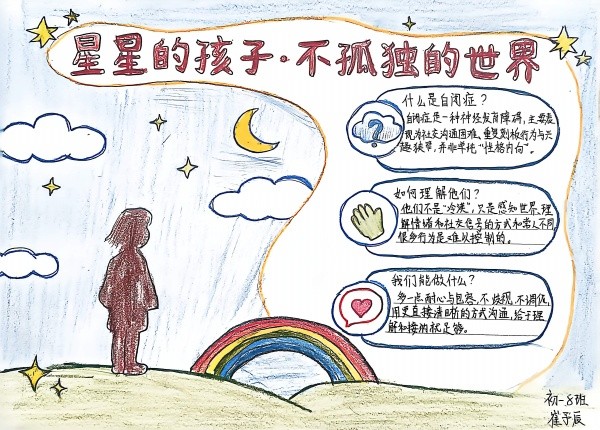 星星的孩子·不孤独的世界
什么是自闭症？
自闭症是一种神经发育障碍，主要表
现为社交沟通困难、重复刻板行为与兴
趣狭窄，并非单纯“性格内向”。
如何理解他们？
他们不是“冷漠”，只是感知世界、理
解情绪和社交信号的方式和常人不同，
很多行为是难以控制的。
我们能做什么？
多一点耐心与包容，不歧视，不调侃，
用更直接清晰的方式沟通，给予理
解和接纳就足够。
初一8班
崔子辰